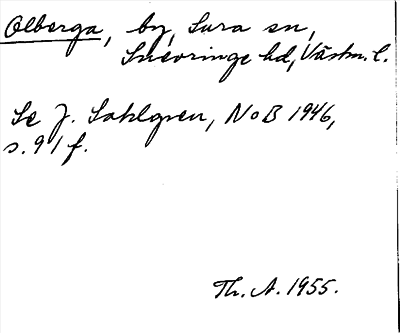 Olberga, by, Sura sn,
Snevringe hd, Västm. l.
Se J. Sahlgren, NoB 1946,
s. 91 f.
Th. A. 1955.